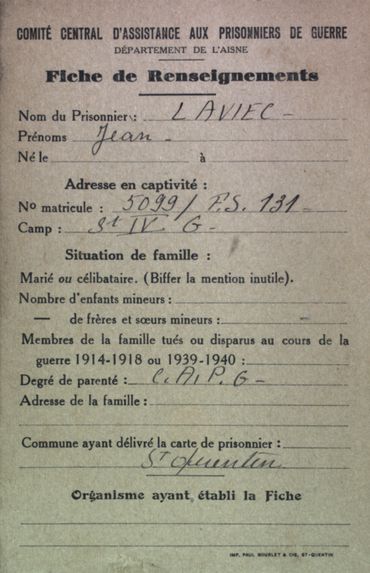 COMITÉ CENTRAL D'ASSISTANCE AUX PRISONNIERS DE GUERRE
DÉPARTEMENT DE L'AISNE
Fiche de Renseignements
Nom du Prisonnier : LAVIEC -
Prénoms Jean -
Né le à
Adresse en captivité :
No matricule : 5099/F.S. 131 -
Camp : St IV G -
Situation de famille :
Marié ou célibataire. (Biffer la mention inutile).
Nombre d'enfants mineurs :
— de frères et sœurs mineurs : -
Membres de la famille tués ou disparus au cours de la
guerre 1914-1918 ou 1939-1940 :
Degré de parenté : C.A.P.G -
Adresse de la famille :
Commune ayant délivré la carte de prisonnier :
St Quentin
Organisme ayant établi la Fiche
IMP. PAUL BOURLET & CIE, ST-QUENTIN